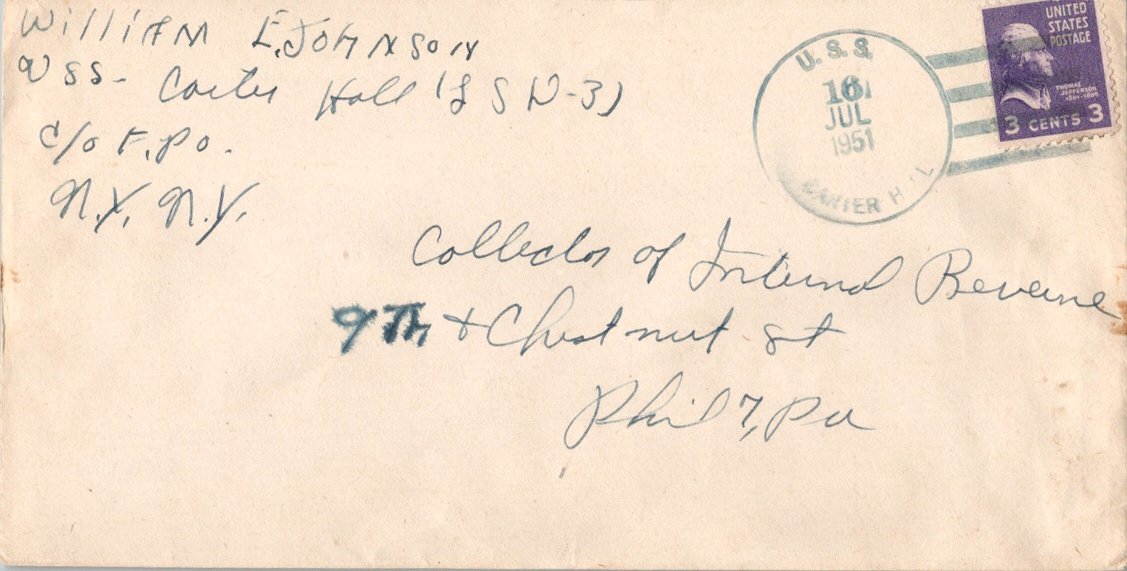 William E. Johnson
USS- Carter Hall (LSD-3)
c/o F.P.O.
N.Y. N.Y.
U.S.S.
16
JUL
1951
CARTER HALL
UNITED
STATES
POSTAGE
THOMAS
JEFFERSON
1801-1809
3 CENTS 3
Collector of Internal Revenue
9Th + Chestnut St
Phil 7, Pa